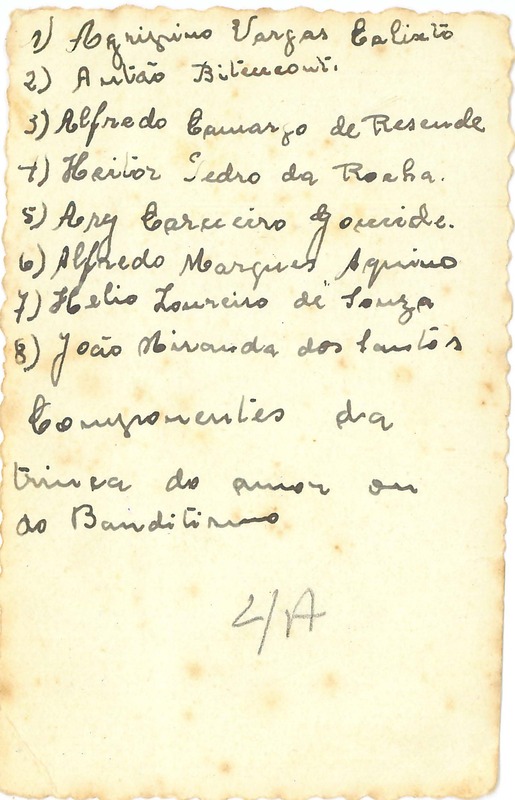 1) Agripino Vargas Calixto
2) Antão Bitencourt.
3) Alfredo Camargo de Resende
4) Heitor Pedro da Rocha.
5) Ary Carneiro
6) Alfredo Marques Aquino
7) Helio Loureiro de Souza
8) João Miranda dos Santos
Componentes da
trinca do amor ou
do Banditismo
2/A